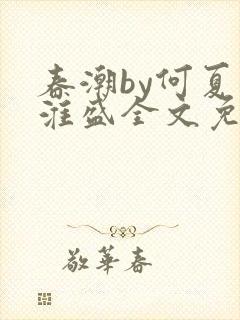 春潮by何夏
淮盛全文免
敬華春